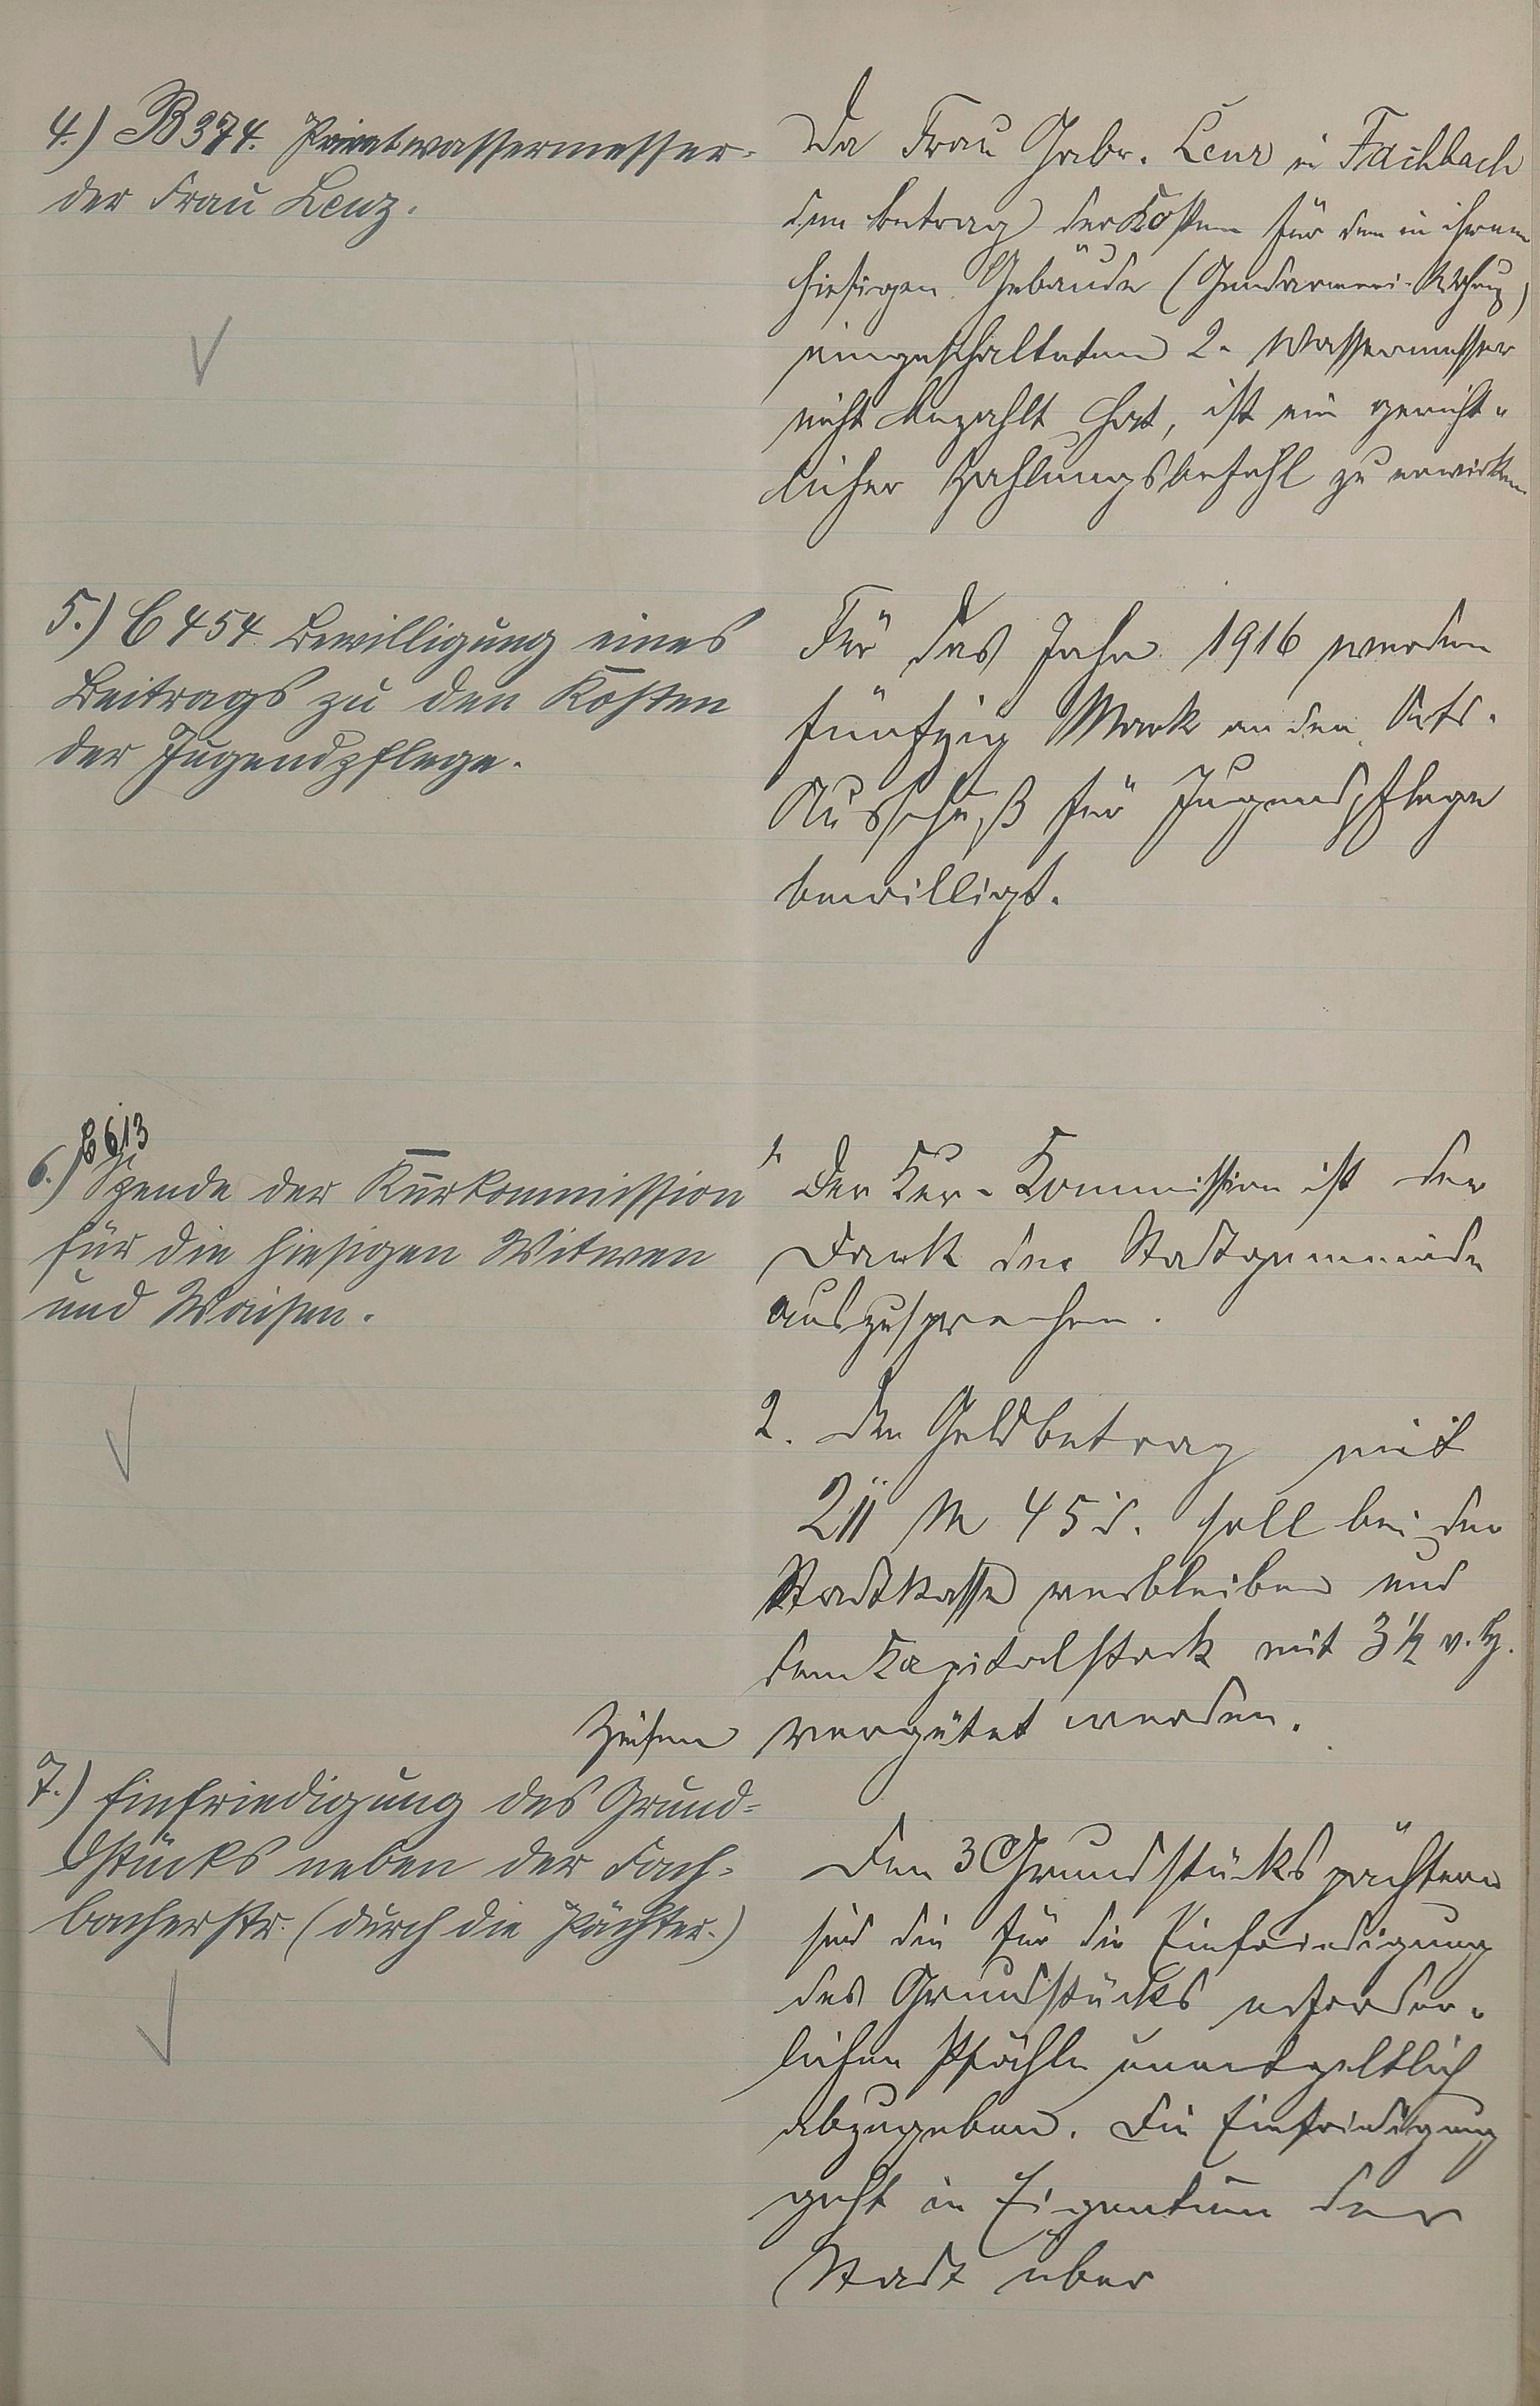 4.) B 374. Privatwassermesser-
der Frau Lenz.
Da Frau Gabr. Lenz in Fachbach
den Betrag der Kosten für den in ihrem
hiesigen Gebäude (Gendarmerie-Wohng)
eingeschalteten 2. Wassermesser
nicht bezahlt hat, ist ein gericht-
licher Zahlungsbefehl zu erwirken
5.) C 454 Bewilligung eines
Beitrags zu den Kosten
der Jugendpflege.
Für das Jahr 1916 werden
fünfzig Mark an den Orts-
Ausschuß für Jugendpflege
bewilligt.
6.) E 613
Spende der Kurkommission
für die hiesigen Witwen
und Waisen.
1. Der Kur-Kommission ist der
Dank der Stadtgemeinde
auszusprechen.
2. Der Geldbetrag mit
211 M 45 d. soll bei der
Stadtkasse verbleiben und
dem Kapitalstock mit 3 1/2 v. H.
Zinsen vergütet werden.
7.) Einfriedigung des Grund-
stücks neben der Fach-
bacherstr. (durch die Pächter.)
Den 3 Grundstückspächtern
sind die für die Einfriedigung
des Grundstücks erforder-
lichen Pfähle unentgeltlich
abzugeben. Die Einfriedigung
geht in Eigentum der
Stadt über